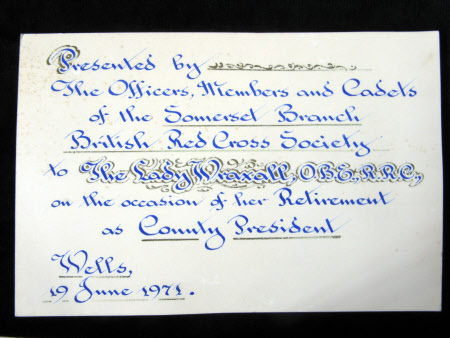 Presented by
The Officers, Members and Cadets
of the Somerset Branch
British Red Cross Society
to The Lady Wraxall, O.B.E., R.R.C.,
on the occasion of her Retirement
as County President
Wells,
19 June 1971.